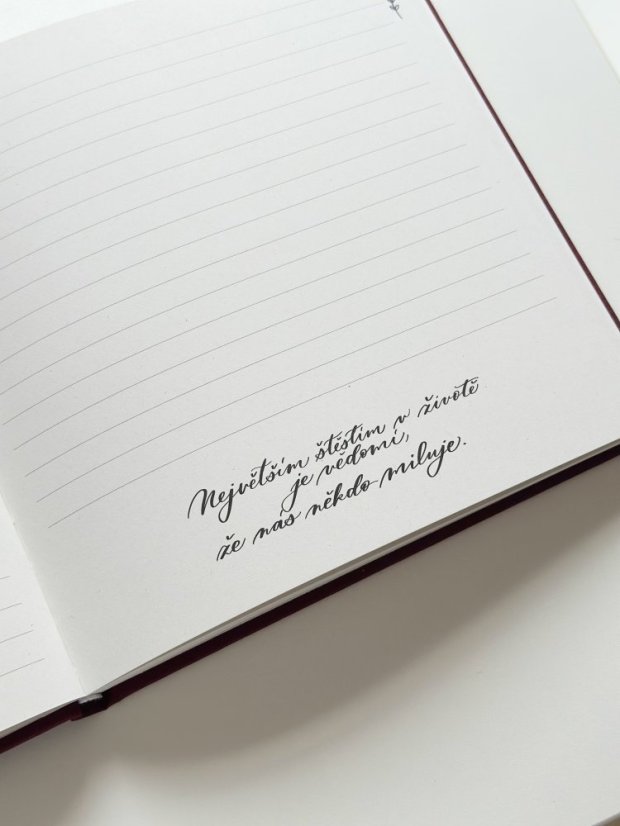 Největším štěstím v životě
je vědomí,
že nás někdo miluje.